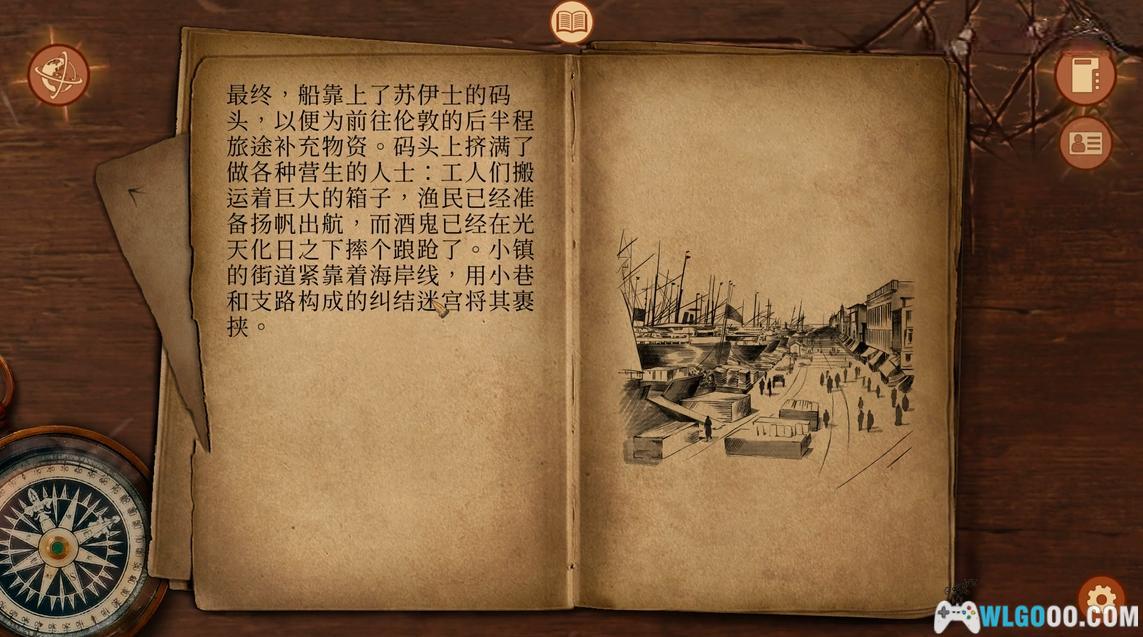 最终，船靠上了苏伊士的码
头，以便为前往伦敦的后半程
旅途补充物资。码头上挤满了
做各种营生的人士：工人们搬
运着巨大的箱子，渔民已经准
备扬帆出航，而酒鬼已经在光
天化日之下摔个踉跄了。小镇
的街道紧靠着海岸线，用小巷
和支路构成的纠结迷宫将其裹
挟。
WLGOOO.COM